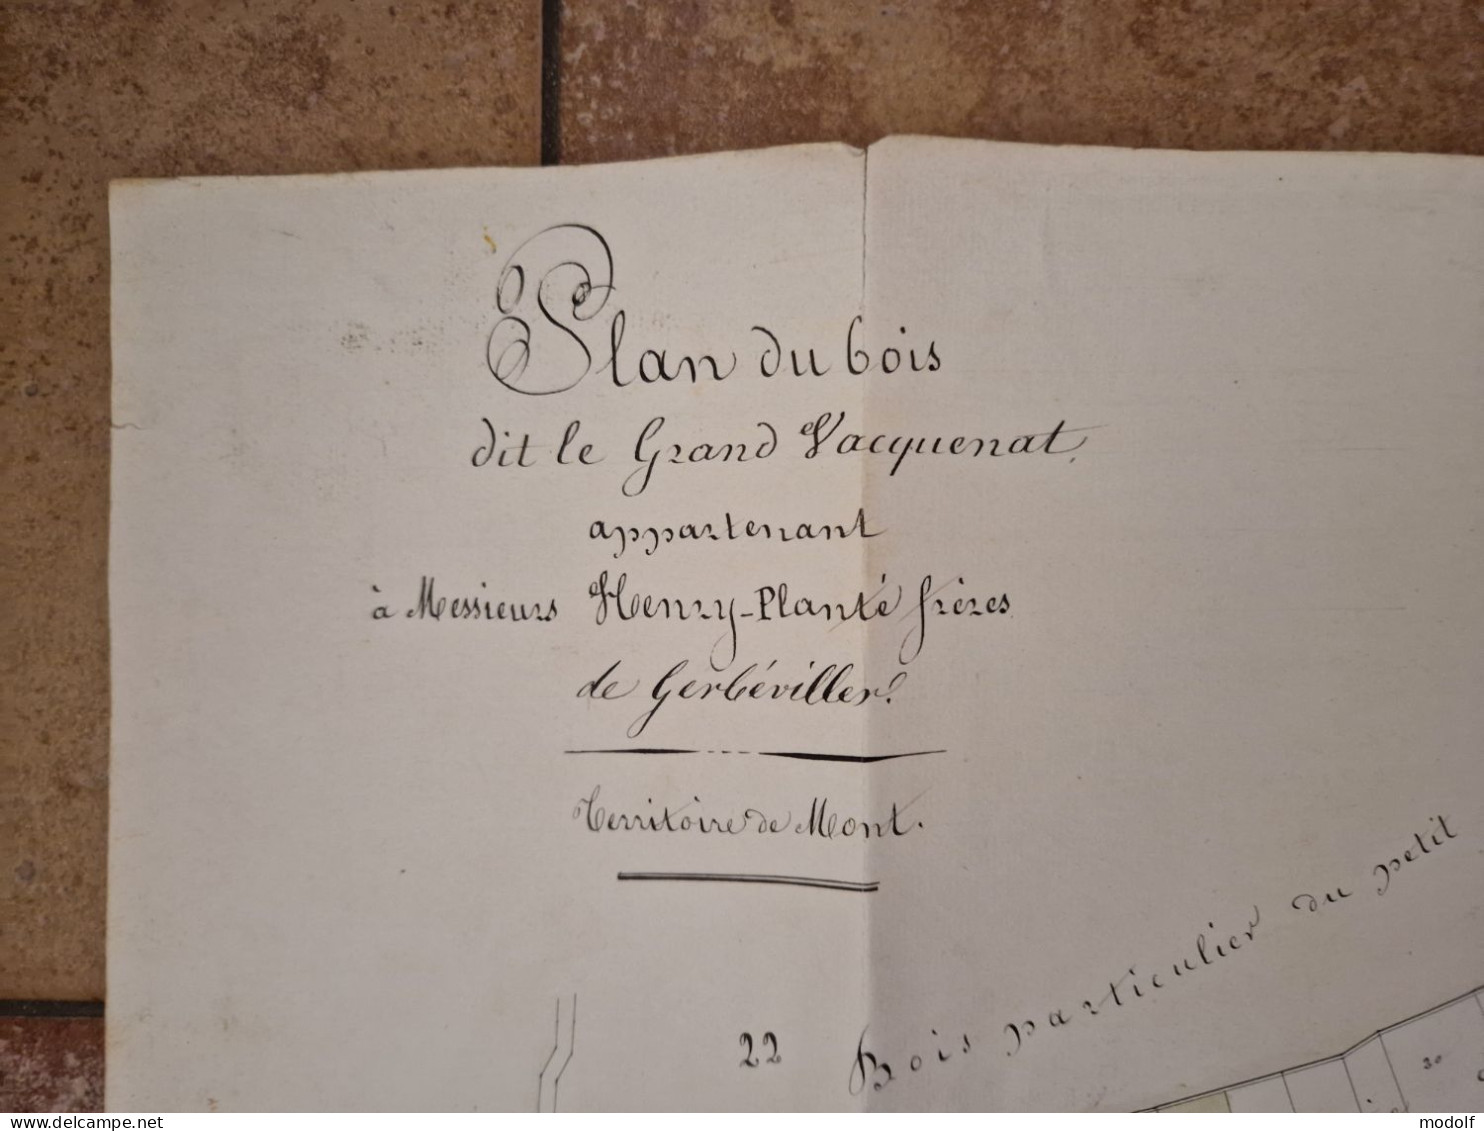 Plan du bois
dit le Grand Vacquenat,
appartenant
à Messieurs Henry-Planté frères
de Gerbéviller.
Territoire de Mont.
Bois particulier du petit
22
30
www.delcampe.net
modolf